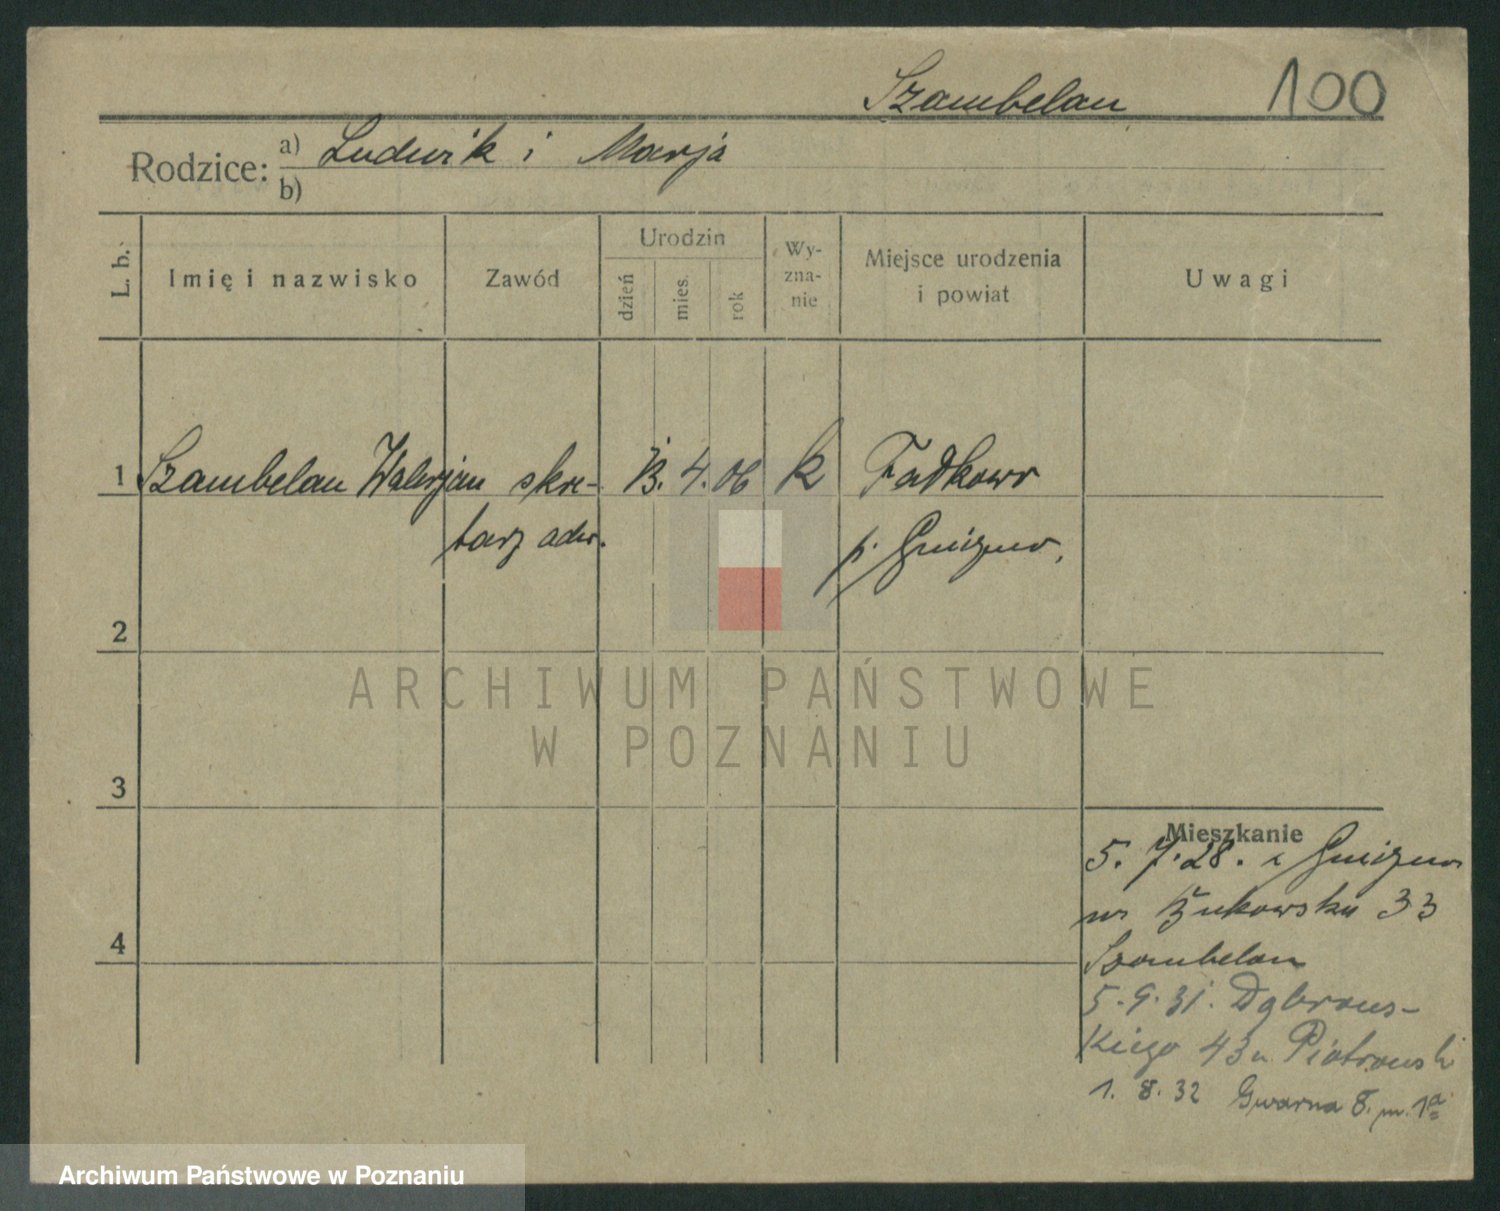 Szambelan 100
Rodzice: a) Ludwik i Marja
b)
L. b. Imię i nazwisko Zawód Urodzin dzień mies. rok Wyznanie Miejsce urodzenia i powiat Uwagi
1 Szambelan Walerjan skre- 13. 4. 06 k Fałkowo
tarz adw. p. Gniezno,
2
ARCHIWUM PAŃSTWOWE
W POZNANIU
3
Mieszkanie
5. 7. 28. z Gniezno
Żukowska 33
4
Szambelan
5. 9. 31. Dąbrows-
kiego 43 u Piotrowski
1. 8. 32 Gwarna 8. m. 1a
Archiwum Państwowe w Poznaniu